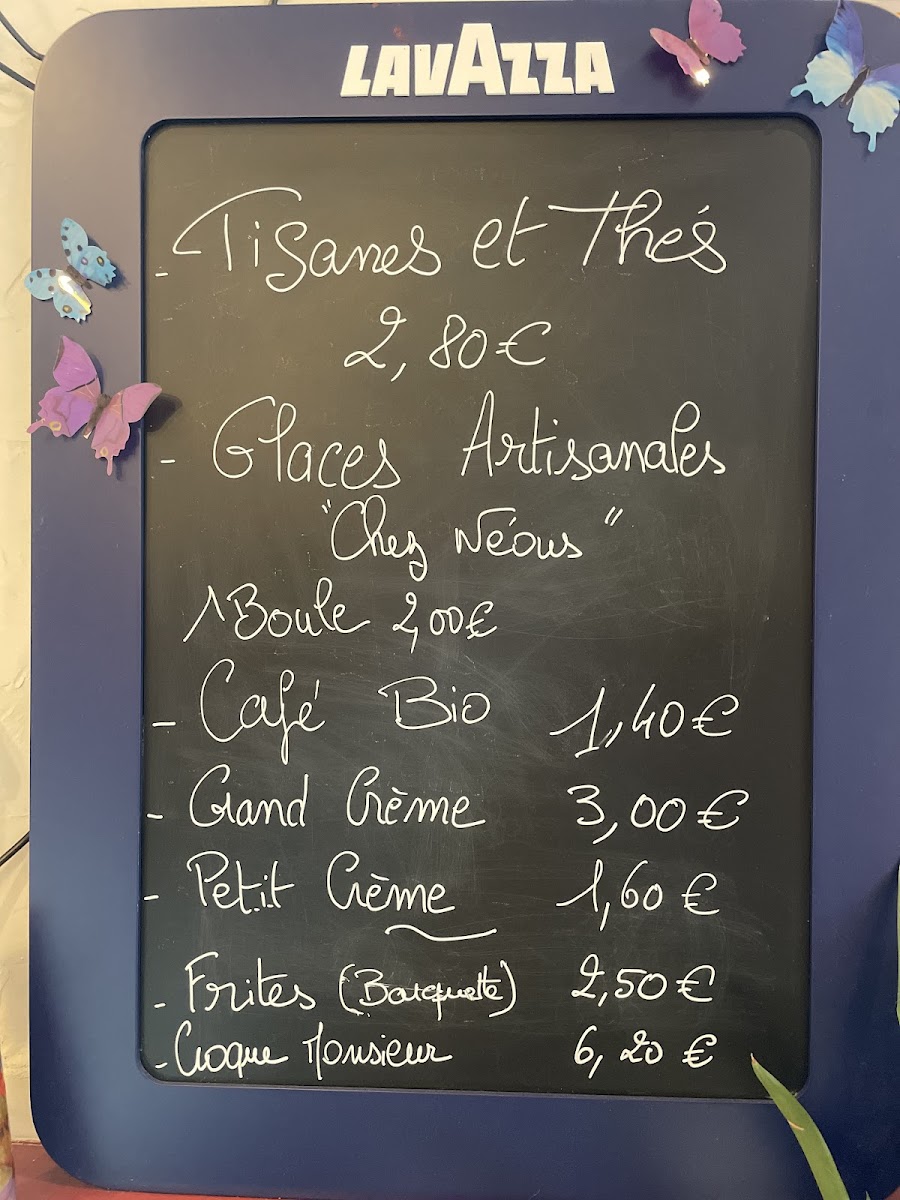 LAVAZZA
- Tisanes et Thés
2,80€
- Glaces Artisanales
"Chez Néous"
1 Boule 2,00€
- Café Bio 1,40€
- Grand Crème 3,00€
- Petit Crème 1,60€
- Frites (Barquette) 2,50€
- Croque Monsieur 6,20€